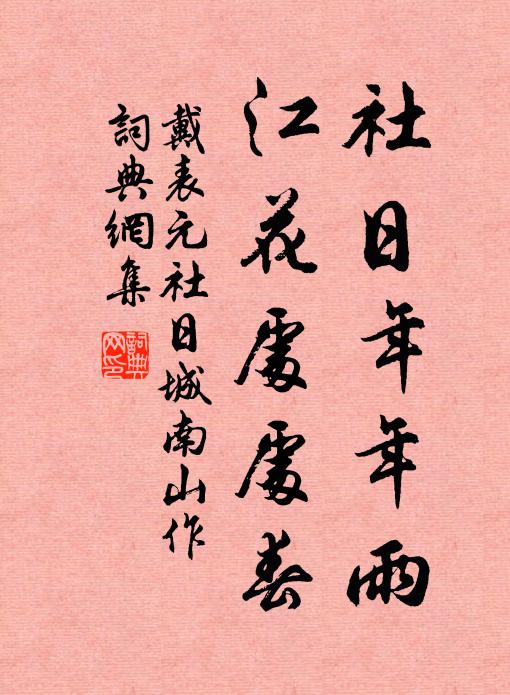 社日年年雨
江花處處春
戴表元社日城南山作
詞典網集
詞典
网印